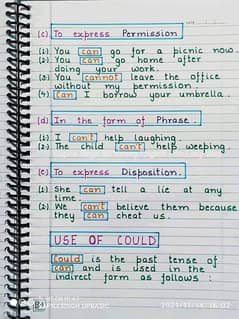 (c) To express Permission
(1) You can go for a picnic now.
(2) You can go home after
doing your work.
(3) You cannot leave the office
without my permission.
(4) Can I borrow your umbrella.
(d) In the form of Phrase.
(1) I can't help laughing.
(2) The child can't help weeping.
(e) To express Disposition.
(1) She can tell a lie at any
time.
(2) We can't believe them because
they can cheat us.
USE OF COULD
Could is the past tense of
can and is used in the
indirect form as follows :